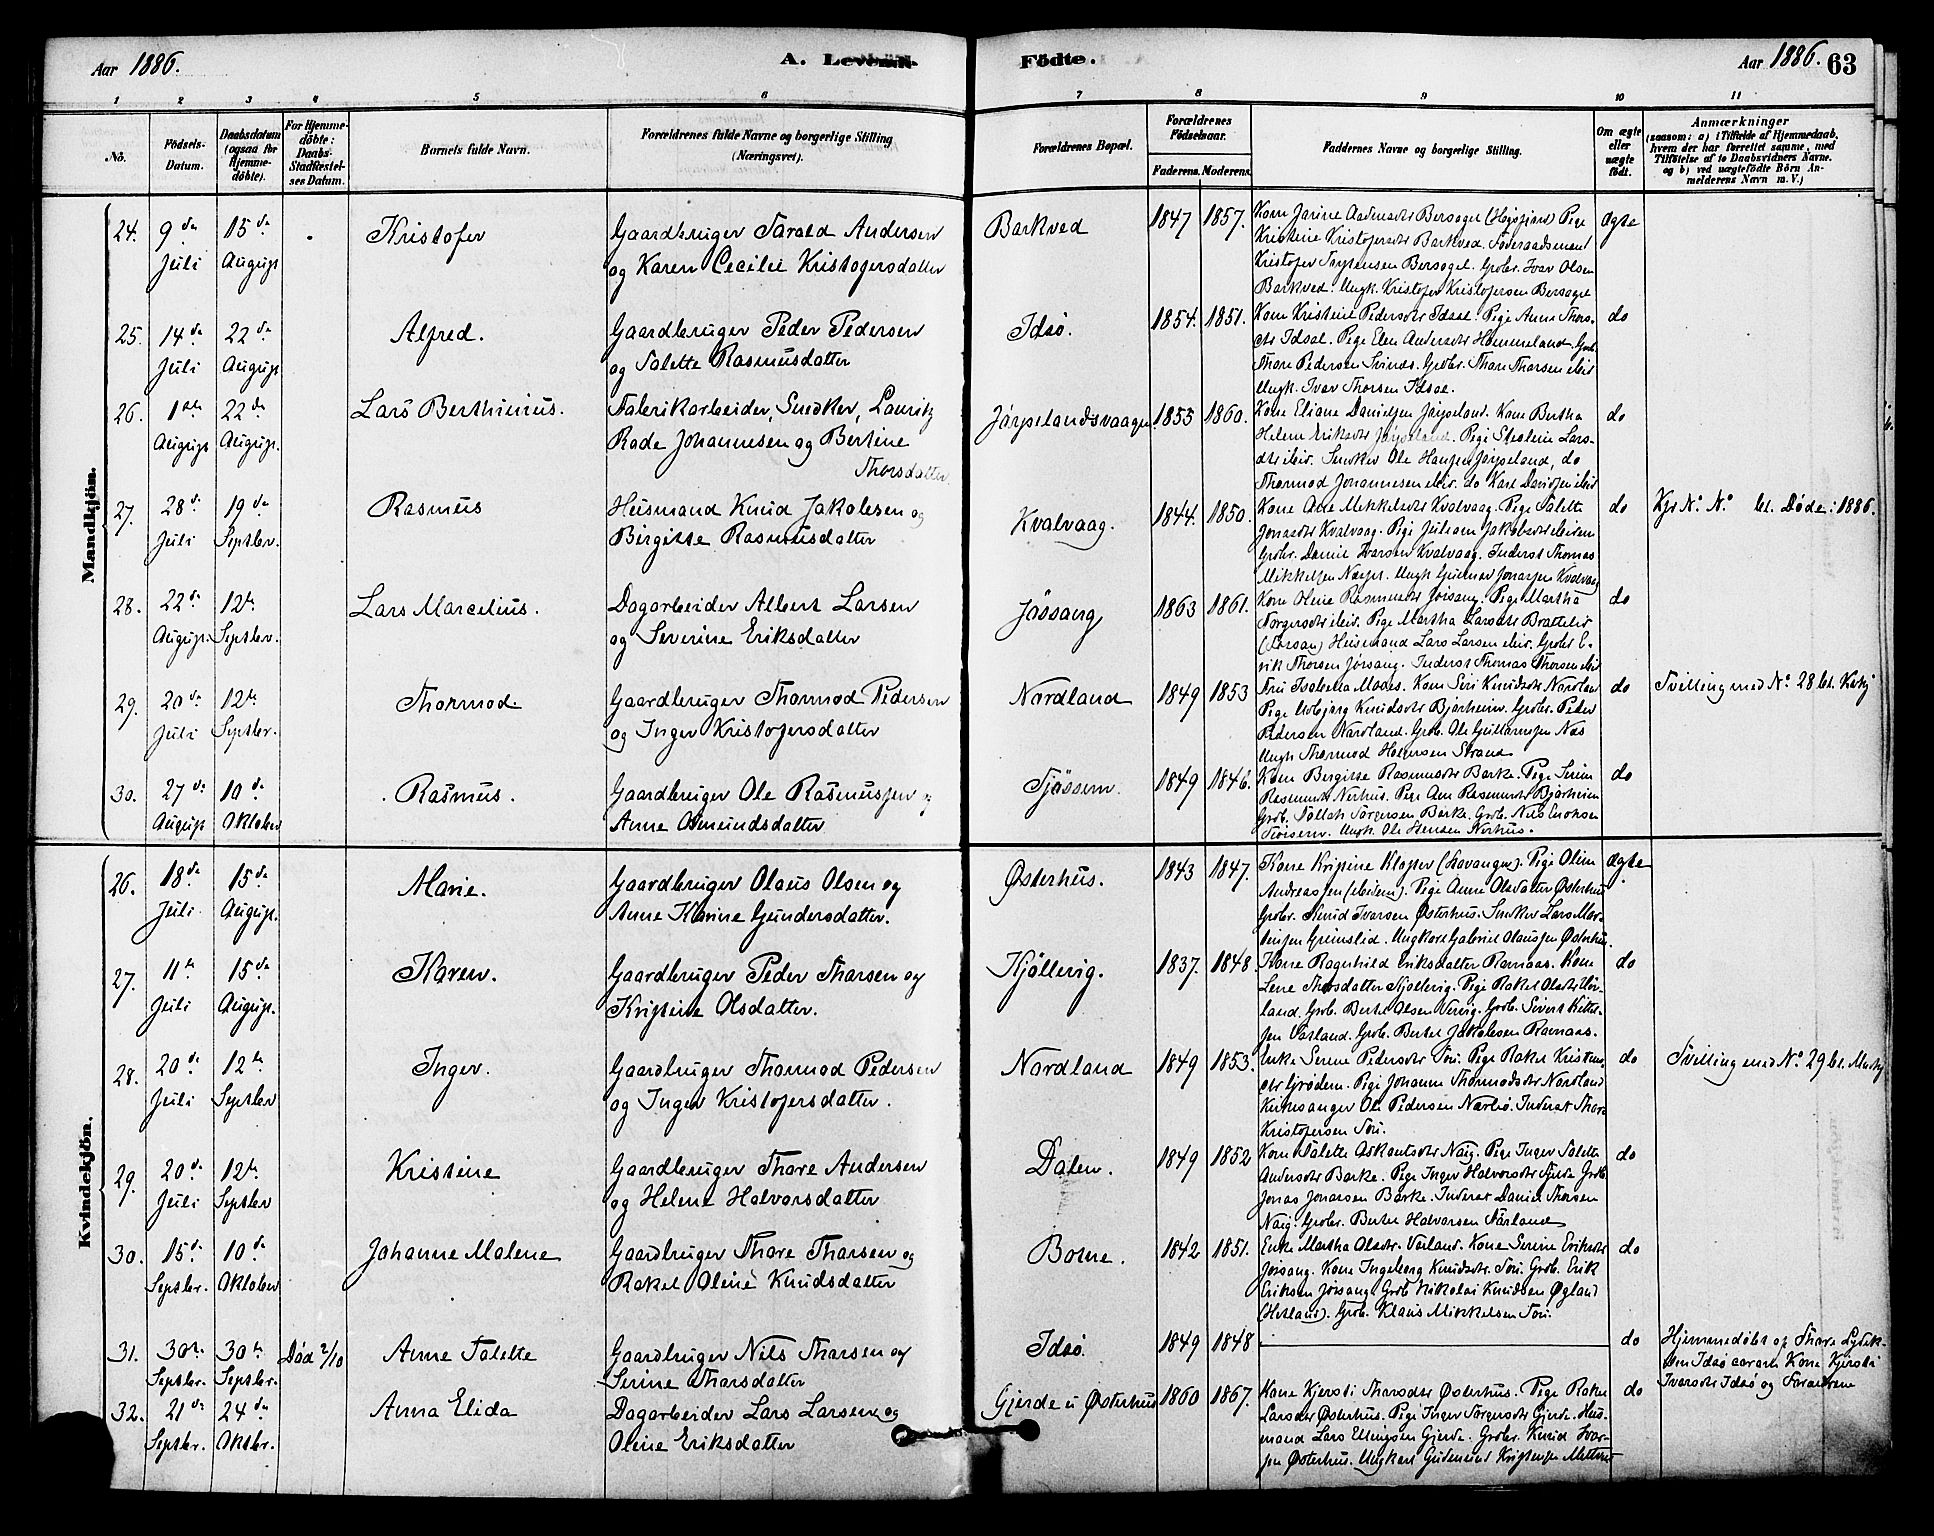 Aar 1886.
A. Levende
Födte.
Aar 1886. 63
1 2 3 4 5 6 7 8 9 10 11
No.
Födsels-Datum.
Daabsdatum (ogsaa for Hjemme-döbte).
For Hjemme-döbte: Daabs-Stadfæstelses Datum.
Barnets fulde Navn.
Forældrenes fulde Navne og borgerlige Stilling (Næringsvei).
Forældrenes Bopæl.
Forældrenes Födselsaar.
Faderens. Moderens.
Faddernes Navne og borgerlige Stilling.
Om ægte eller uægte födt.
Anmærkninger
(saasom: a) i Tilfælde af Hjemmedaab, hvem der har forrettet samme, med Tilföielse af to Daabsvidners Navne, og b) ved uægtefödte Börn Anmelderens Navn m. V.)
Mandkjön.
24. 9de Juli 15de August Kristofer
Gaardbruger Tarald Andersen
og Karen Cecilie Kristofersdatter
Barkved 1847 1857.
Kristine Kristofersdtr Barkved. Föderaadsmand
Barkved. Ungk. Kristofer Kristofersen Bersaget
Ægte
25. 14de Juli 22de August Alfred.
Gaardbruger Peder Pedersen
og Talette Rasmusdatter
Idsö. 1854. 1851.
Kone Kristine Pedersdtr Idsal. Pige Anna Thors-
dtr Idsal. Pige Elen Andersdtr Hommeland. Grb.
Thore Pedersen Svines. Grbr. Thore Thorsen ibid
Ungk. Ivar Thorsen Idsal.
do
26. 1ste August 22de August. Lars Berthinius.
Fabrikarbeider, Snedker, Lauritz
Rade Johannesen og Bertine
Thorsdatter.
Jörpelandsvaagen 1855 1860.
Kone Eliane Danielsen Jörpeland. Kone Bertha
Helene Eriksdtr Jörpeland. Pige
Snedker Ole Hansen Jörpeland, do
Thormod Johannesen ibid. do Karl Davidsen ibid
do
27. 28de Juli 19de Septbr. Rasmus
Husmand Knud Jakobsen og
Birgitte Rasmusdatter
Kvalvaag. 1844. 1850.
Kone Ane Mikkelsdtr Kvalvaag. Pige Talette
Jonasdtr Kvalvaag. Pige Juliane Jakobsdtr ibidem
Grbr. Daniel Ivarsen Kvalvaag. Inderst Thomas
Mikkelsen Ungk Gudmund Jonassen Kvalvaag
do
bl. Døde: 1886.
28. 22de August. 12te Septbr. Lars Marcelius.
Dagarbeider Albert Larsen
og Severine Eriksdatter
Jössang 1863 1861.
Kone Oline Rasmusdtr Jörsang. Pige Martha
Torgersdtr ibid. Pige Martha Larsdtr Bratteli
Husmand Lars Larsen ibid. Grbr E-
rik Thorsen Jörsang. Inderst Thomas Thorsen ibid
do
29. 20de Juli 12te Septbr. Thormod.
Gaardbruger Thormod Pedersen
og Inger Kristofersdatter
Nordland 1849 1853
Fru Isabella Maaes. Kone Siri Knudsdtr Nordland
Pige Asbjörg Knudsdtr Bjørheim. Grbr. Peder
Pedersen Nordland. Grb. Ole Guttormsen Næs
Ungk Thormod Halversen Strand
do
Tvilling med No. 28 bl. Kvkj
30. 27de August 10de Oktober Rasmus.
Gaardbruger Ole Rasmussen og
Anne Omundsdatter
Tjössem. 1849 1846.
Kone Bergitte Rasmusdtr Barke. Pige Serine
Rasmusdtr Norhus. Pige Ane Rasmusdtr Bjørheim
Grb. Tollak Torgersen Barke. Grb. Nils Enoksen
Tjösem. Ungk. Ole Hansen Norhus.
do
Kvindekjön.
26. 18de Juli 15de August. Marie.
Gaardbruger Olaus Olsen og
Anne Karine Gundersdatter.
Østerhus. 1843 1847.
Kone Kristine Kloster (Stavanger). Pige Oline
Andreassen (ibidem). Pige Anne Olsdatter Østerhus
Grbr. Knud Ivarsen Østerhus. Snedker Lars Mor-
tensen Grimslid. Ungkarl Gabriel Olaussen Østerhus.
Ægte
27. 11te Juli 15de August. Karen.
Gaardbruger Peder Tharsen og
Kristine Olsdatter.
Kjöllevig. 1837. 1848.
Kone Ragnhild Eriksdatter Ramaas. Kone
Lene Thorsdatter Kjöllevig. Pige Rakel Olsdtr
Grb. Bertel Olsen Vervig. Grb. Sivert Kittel-
sen Tarland. Grb. Bertel Jakobsen Ramaas.
do
28. 20de Juli 12te Septbr Inger.
Gaardbruger Thormod Pedersen
og Inger Kristofersdatter.
Nordland 1849 1853.
Enke Serene Pedersdtr Tou. Pige Rakel Kristens-
dtr Grödem. Pige Johanne Thormodsdtr Nordland
Kirkesanger Ole Pedersen Nærbö. Inderst Thore
Kristofersen Tou.
do
Tvilling med No. 29 bl. Mndkj
29. 20de Juli 12te Septbr Kristine
Gaardbruger Thore Andersen
og Helene Halvorsdatter
Dalen. 1849 1852
Kone Talette Askautsdtr Naig. Pige Inger Talette
Andersdtr Barke. Pige Inger Halvorsdtr Fjelde Grb.
Jonas Jonassen Barke. Inderst Daniel Thorsen
Naig. Grbr. Bertel Halvorsen Tarland
do
30. 15de Septbr. 10de Oktober Johanne Malene
Gaardbruger Thore Tharsen og
Rakel Oline Knudsdatter
Botne. 1842 1851.
Enke Martha Olsdtr. Varland. Kone Serine Eriksdtr
Jörsang. Kone Ingeborg Knudsdtr. Tou. Grb. Erik
Eriksen Jörsang. Grb Nikolai Knudsen Øgland
(Hetland). Grb. Klaus Mikkelsen Tou.
do
31. 30te Septbr. 30te Septbr. Död 2/10 Anne Talette
Gaardbruger Nils Tharsen og
Serine Tharsdatter
Idsö. 1849 1848
do
Hjemmedöbt af Thore Lydik-
sen Idsö Kone Kjersti
Ivarsdtr Idsö og Forældrene
32. 21de Septbr. 24de Oktbr. Anna Elida
Dagarbeider Lars Larsen og
Oline Eriksdatter
Gjerde u Østerhus 1860 1867.
Kone Kjersti Tharsdtr Østerhus. Pige Rakel
Larsdtr Østerhus. Pige Inger Torgersdtr Gjerde. Hus-
mand Lars Ellingsen Gjerde. Grbr. Knud Ivar-
sen Østerhus. Ungkarl Gudmund Kristensen
do